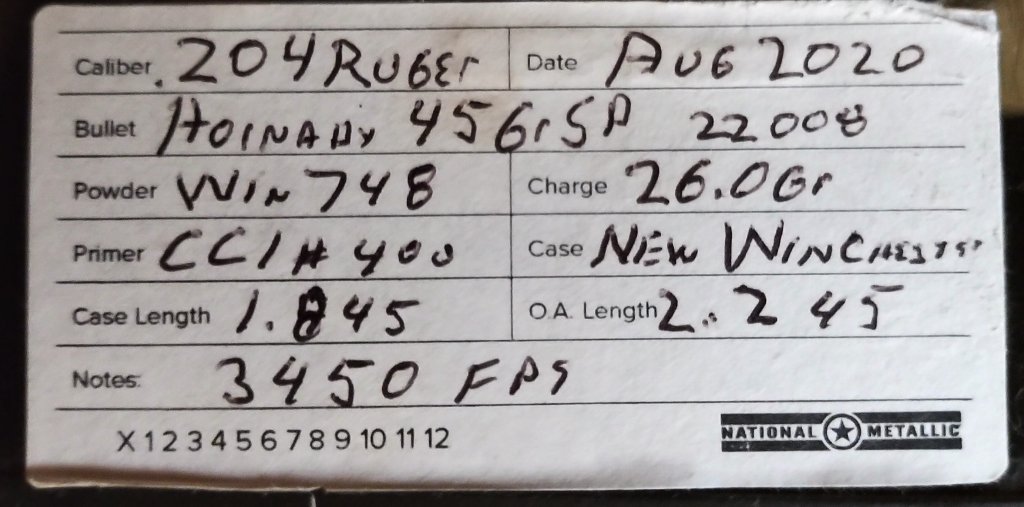 Caliber .204 RUGEr Date AUG 2020
Bullet HOrNADY 45 Gr SP 22008
Powder WIN 748 Charge 26.0 Gr
Primer CCI # 400 Case NEW WINCHESTEr
Case Length 1.845 O.A. Length 2.245
Notes: 3450 FPS
X 1 2 3 4 5 6 7 8 9 10 11 12
NATIONAL METALLIC